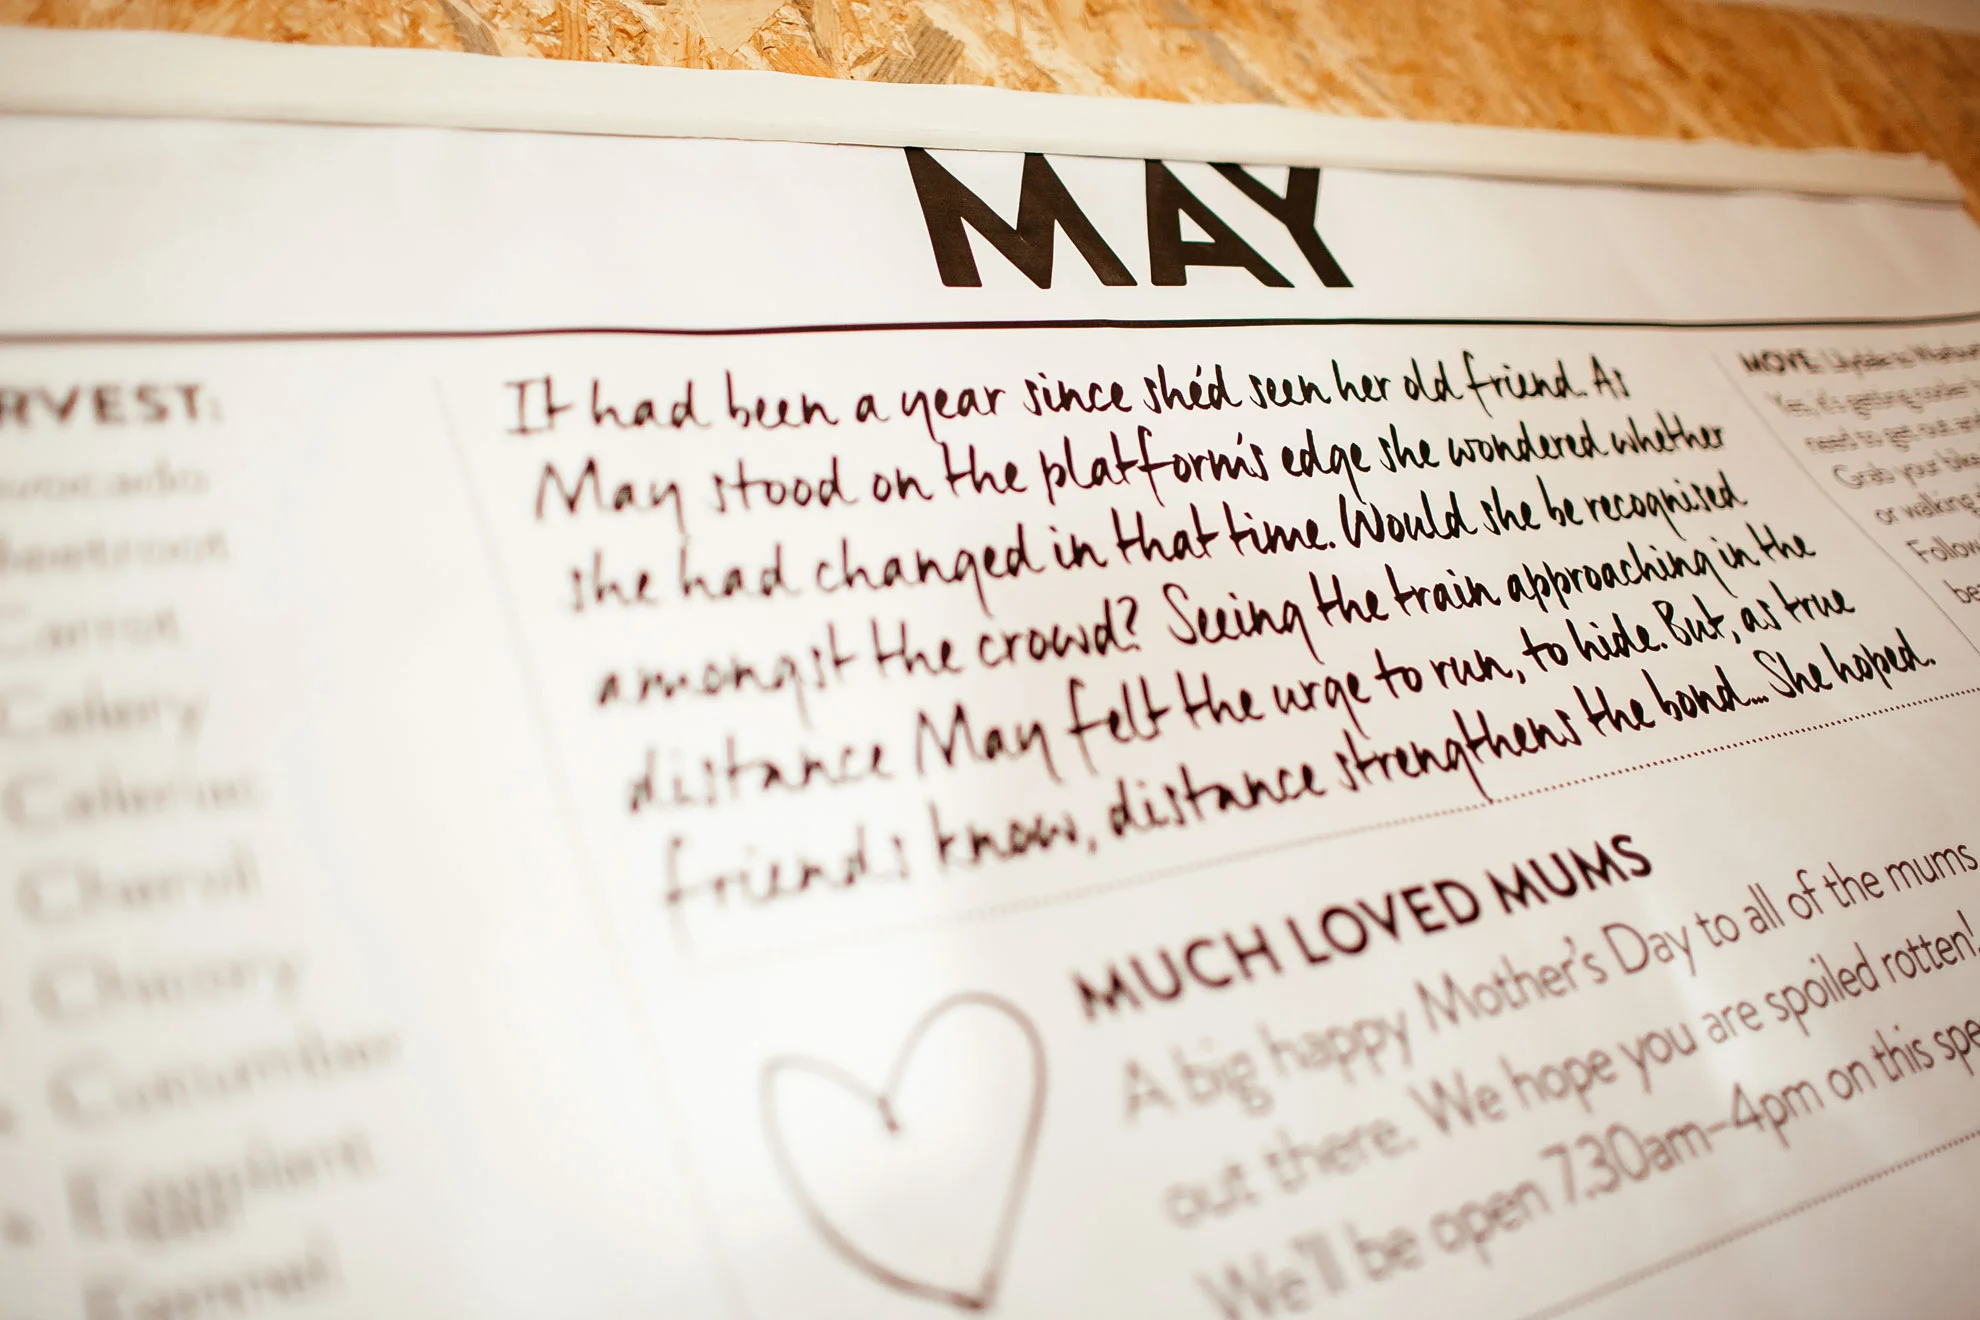 MAY
RVEST:
Avocado
Beetroot
Carrot
Celery
Celeriac
Chervil
Chicory
Cucumber
Eggplant
Fennel
It had been a year since she'd seen her old friend. As
May stood on the platform's edge she wondered whether
she had changed in that time. Would she be recognised
amongst the crowd? Seeing the train approaching in the
distance May felt the urge to run, to hide. But, as true
friends know, distance strengthens the bond.... She hoped.
MUCH LOVED MUMS
A big happy Mother's Day to all of the mums
out there. We hope you are spoiled rotten!
We'll be open 7.30am–4pm on this spe
MOVE: Lilydale to
Yes, it's getting cooler
need to get out
Grab your bike
or walking
Follow
be